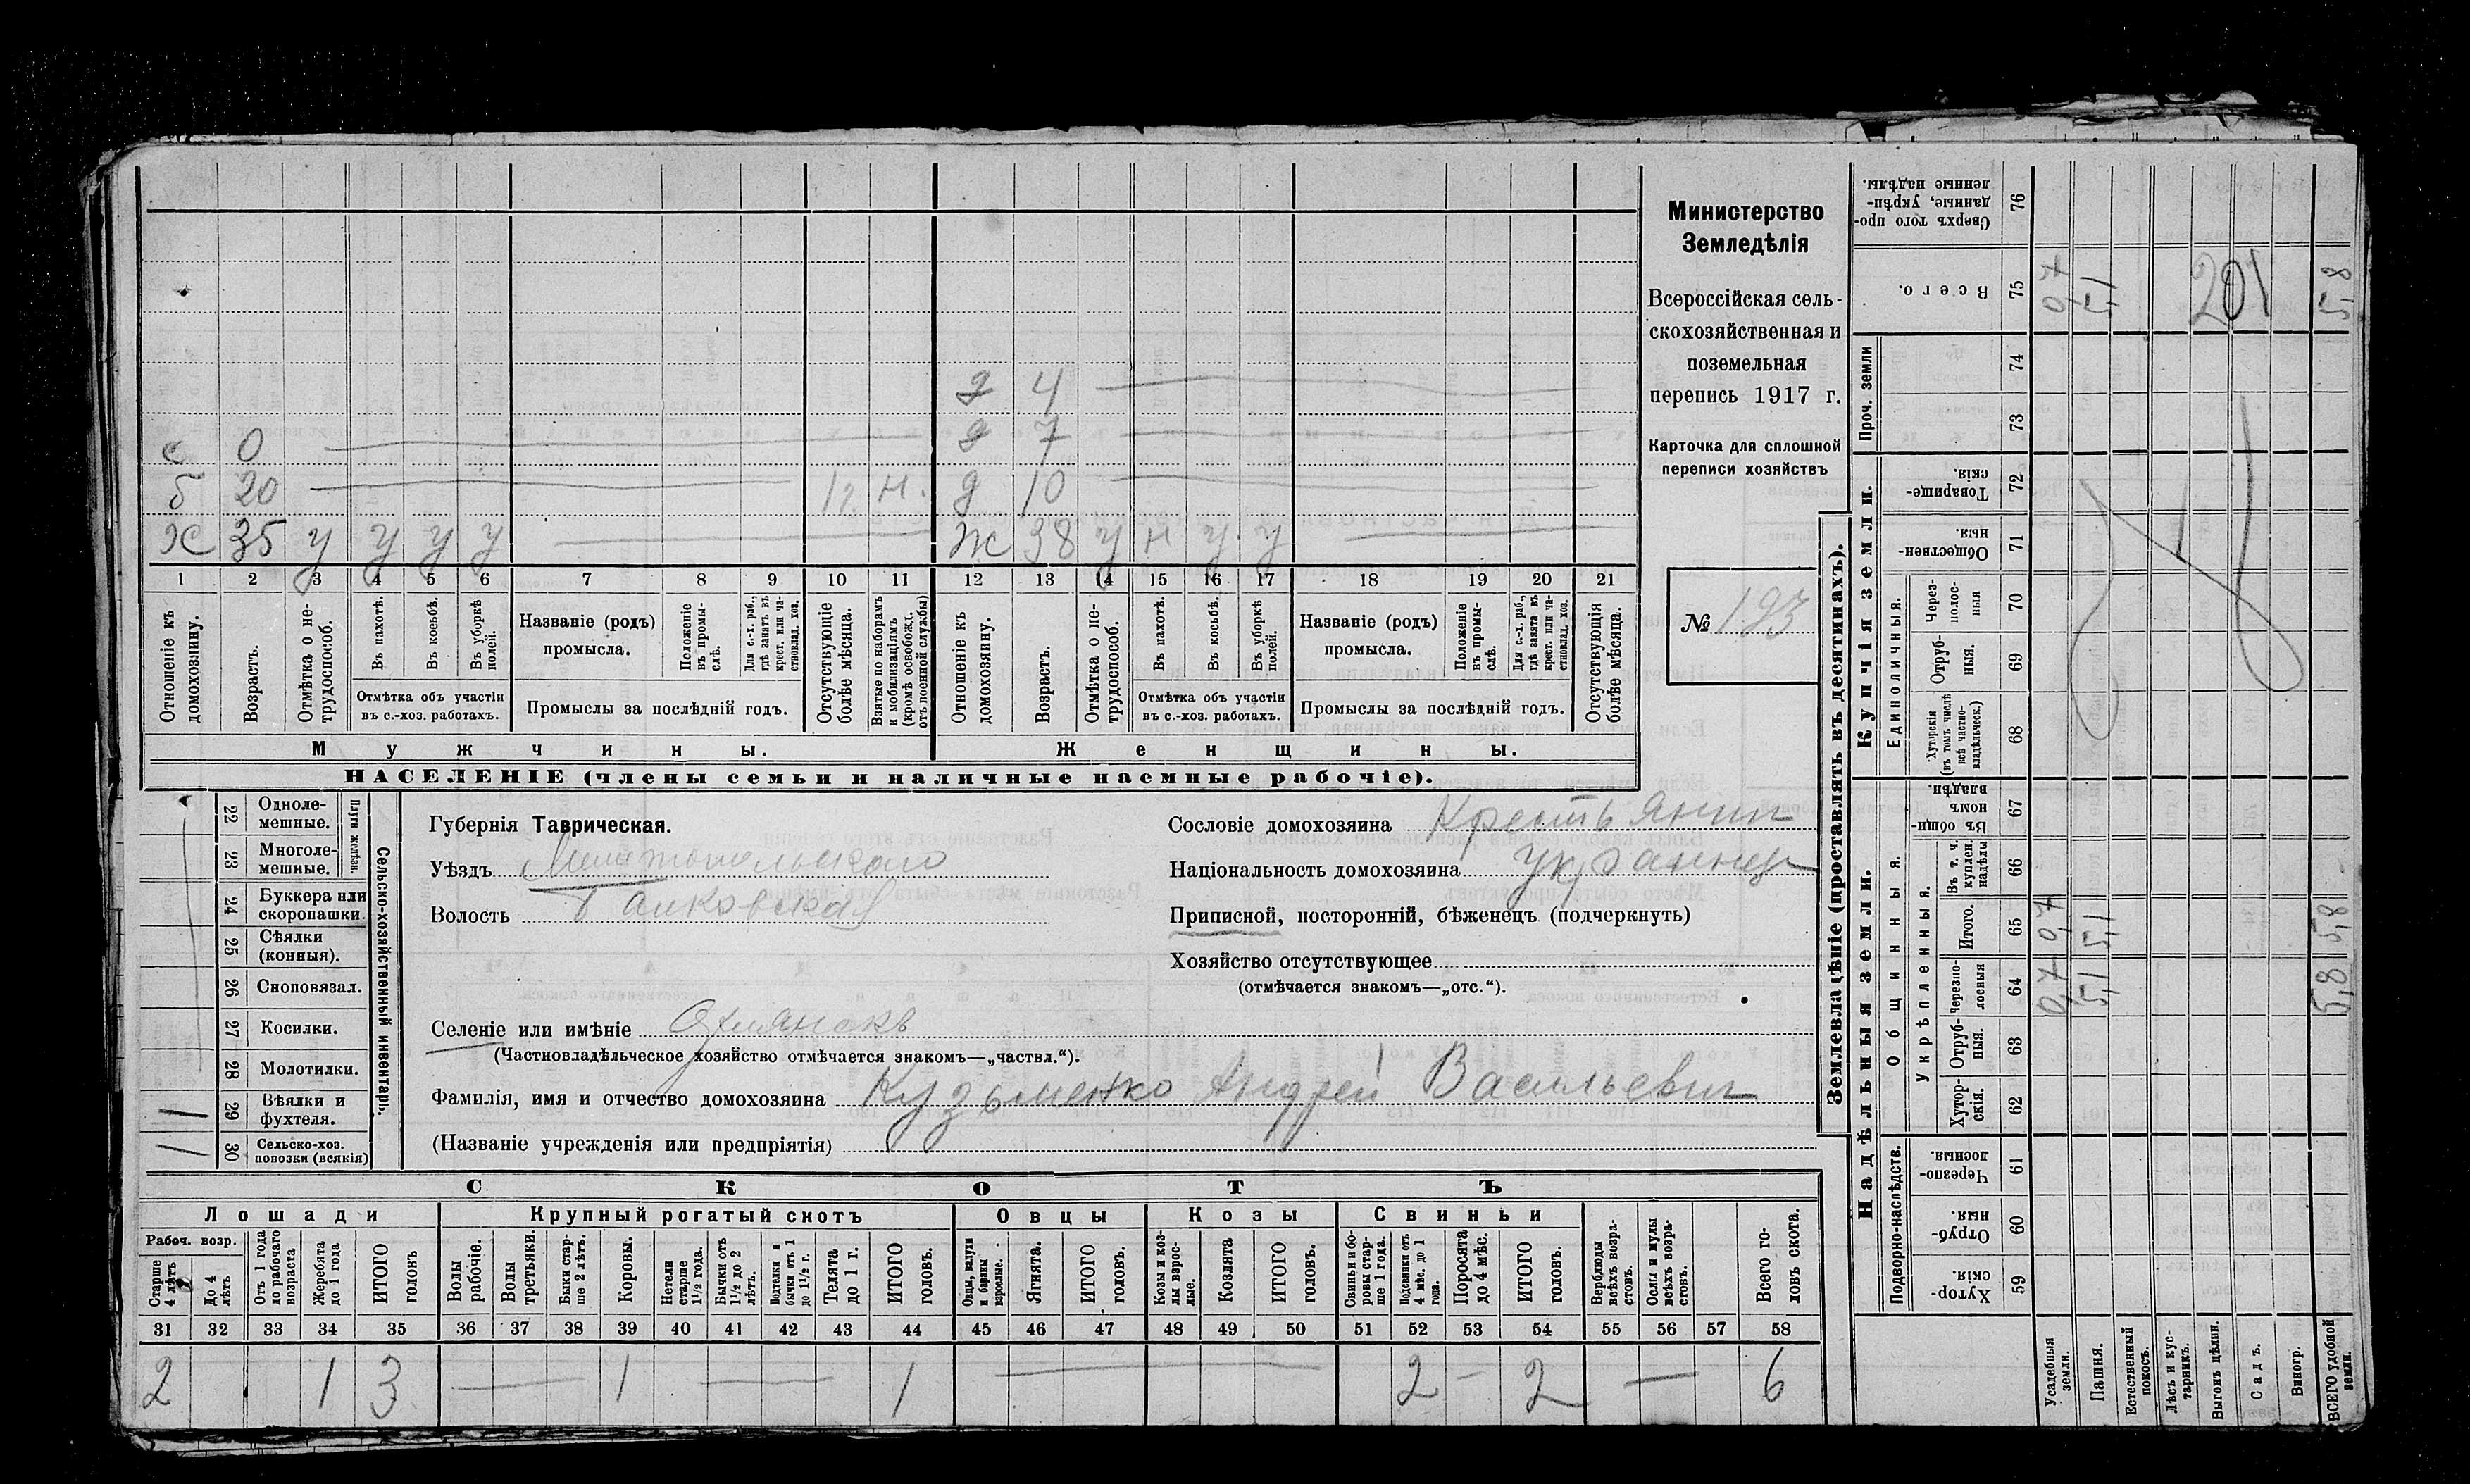 Министерство
Земледѣлія
Всероссійская сель-
скохозяйственная и
поземельная
перепись 1917 г.
Карточка для сплошной
переписи хозяйствъ
№ 193
д 4
с 0 д 7
б 20 12 н. д 10
Х 35 у у у у Ж 38 у н у у
1 2 3 4 5 6 7 8 9 10 11 12 13 14 15 16 17 18 19 20 21
Отношеніе къ домохозяину.
Возрастъ.
Отмѣтка о не-трудоспособ.
Въ пахотѣ.
Въ косьбѣ.
Въ уборкѣ полей.
Отмѣтка объ участіи
въ с.-хоз. работахъ.
Названіе (родъ)
промысла.
Положеніе въ промы-слѣ.
Для с.-х. раб., гдѣ занятъ въ крест. или ча-стновлад. хоз.
Промыслы за послѣдній годъ.
Отсутствующіе болѣе мѣсяца.
Взятые по наборамъ и мобилизаціямъ (кромѣ освобожд. отъ военной службы)
Отношеніе къ домохозяину.
Возрастъ.
Отмѣтка о не-трудоспособ.
Въ пахотѣ.
Въ косьбѣ.
Въ уборкѣ полей.
Отмѣтка объ участіи
въ с.-хоз. работахъ.
Названіе (родъ)
промысла.
Положеніе въ промы-слѣ.
Для с.-х. раб., гдѣ занята въ крест. или ча-стновлад. хоз.
Промыслы за послѣдній годъ.
Отсутствующія болѣе мѣсяца.
Мужчины. Женщины.
НАСЕЛЕНІЕ (члены семьи и наличные наемные рабочіе).
Сельско-хозяйственный инвентарь.
Плуги желѣзн.
22 Одноле-мешные.
23 Многоле-мешные.
24 Буккера или скоропашки.
25 Сѣялки (конныя).
26 Сноповязал.
27 Косилки.
28 Молотилки.
29 Вѣялки и фухтеля. 1
30 Сельско-хоз. повозки (всякія) 1
Губернія Таврическая.
Уѣздъ Мелитопольского
Волость
Селеніе или имѣніе
(Частновладѣльческое хозяйство отмѣчается знакомъ—„частвл.“).
Фамилія, имя и отчество домохозяина Кузьменко Андрей Васильевич
(Названіе учрежденія или предпріятія)
Сословіе домохозяина Крестьянин
Національность домохозяина украинец
Приписной, посторонній, бѣженецъ (подчеркнуть)
Хозяйство отсутствующее
(отмѣчается знакомъ—„отс.“).
СКОТЪ
Лошади Крупный рогатый скотъ Овцы Козы Свиньи
Рабоч. возр.
Старше 4 лѣтъ
До 4 лѣтъ
Отъ 1 года до рабочаго возраста
Жеребята до 1 года
ИТОГО головъ
Волы рабочіе.
Волы третьяки.
Быки стар-ше 2 лѣтъ.
Коровы.
Нетели старше 1½ года.
Бычки отъ 1½ до 2 лѣтъ.
Подтелки и бычки отъ 1 до 1½ г.
Телята до 1 г.
ИТОГО головъ.
Овцы, валухи и бараны взрослые.
Ягнята.
ИТОГО головъ.
Козы и коз-лы взрос-лые.
Козлята
ИТОГО головъ.
Свиньи и бо-ровы стар-ше 1 года.
Подсвинки отъ 4 мѣс. до 1 года.
Поросята до 4 мѣс.
ИТОГО головъ.
Верблюды всѣхъ возра-стовъ.
Ослы и мулы всѣхъ возра-стовъ.
Всего го-ловъ скота.
31 32 33 34 35 36 37 38 39 40 41 42 43 44 45 46 47 48 49 50 51 52 53 54 55 56 57 58
2 1 3 — 1 — 1 — 2 — 2 — 6
Землевладѣніе (проставлять въ десятинахъ).
Надѣльныя земли. Купчія земли.
Подворно-наслѣдств.
Общинныя.
Укрѣпленныя.
Единоличныя.
Проч. земли
59 Хутор-скія.
60 Отруб-ныя.
61 Черезпо-лосныя.
62 Хутор-скія.
63 Отруб-ныя.
64 Черезпо-лосныя
65 Итого.
66 Въ т. ч. куплен. надѣлы
67 Въ общи-номъ владѣн.
68 Хуторскія (въ томъ числѣ всѣ частно-владѣльческ.)
69 Отруб-ныя.
70 Через-полос-ныя
71 Обществен-ныя.
72 Товарище-скія.
73
74
75 Всего.
76 Сверхъ того про-данные, укрѣп-ленные надѣлы.
Усадебныя земли. 0,7 0,7 0,7
Пашня. 5,1 5,1 5,1
Естественный покосъ.
Лѣсъ и кус-тарникъ.
Выгонъ цѣлин.
Садъ.
Виногр.
ВСЕГО удобной земли. 5,8 5,8 5,8
201